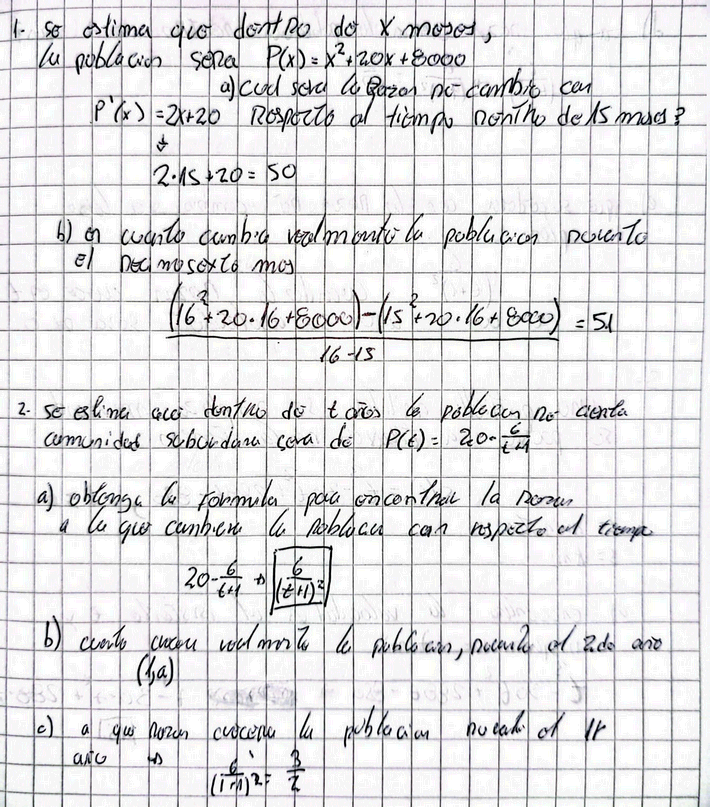 1. se estima que dentro de x meses,
la poblacion sera P(x) = x²+20x+8000
a) cual sera la Razon de cambio con
P'(x) = 2x+20 Respecto al tiempo dentro de 15 meses?
↓
2·15+20 = 50
b) en cuanto cambia realmente la poblacion durante
el decimosexto mes
(16²+20·16+8000)-(15²+20·16+8000) = 51
16-15
2. se estima que dentro de t años la poblacion de cierta
comunidad suburbana sera de P(t) = 20-6/t+1
a) obtenga la formula para encontrar la razon
a la que cambiara la poblacion con respecto al tiempo
20-6/t+1 → 6/(t+1)²
b) cuanto crecera realmente la poblacion, durante el 2do año
c) a que razon crecera la poblacion durante el 1r
año → 6/(1+1)² = 3/2